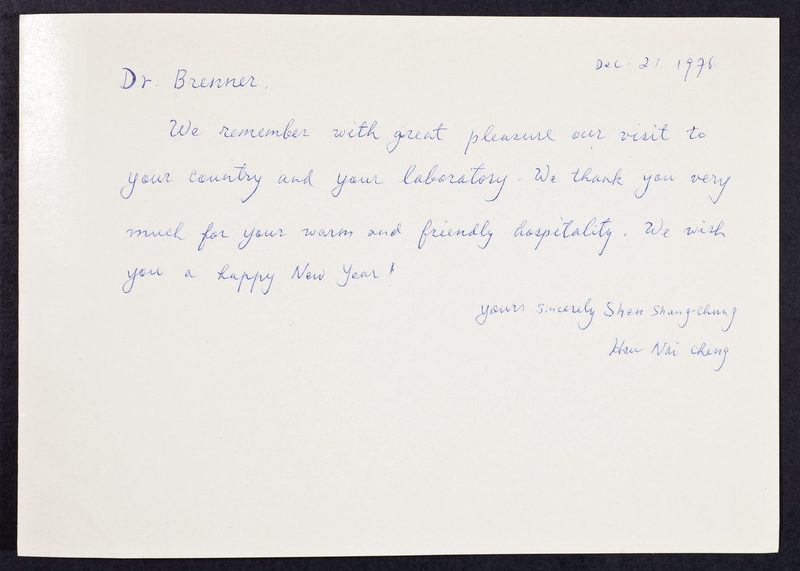 Dec. 21 1976
Dr. Brenner,
We remember with great pleasure our visit to
your country and your laboratory. We thank you very
much for your warm and friendly hospitality. We wish
you a happy New Year!
yours sincerely Shen Shang-Chung
Hsu Nai Cheng